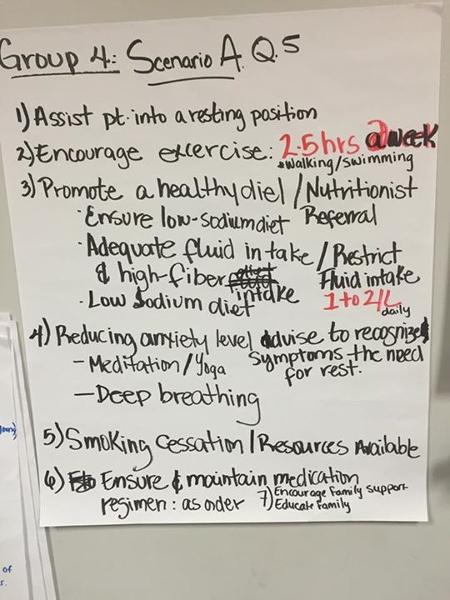 Group 4: Scenario A. Q.5
1) Assist pt. into a resting position
2) Encourage excercise: 2.5hrs a week
• walking/swimming
3) Promote a healthy diet / Nutritionist
· Ensure low-sodium diet Referral
· Adequate fluid intake / Restrict
& high-fiber intake Fluid intake
· Low Sodium diet 1 to 2/L
daily
4) Reducing anxiety level advise to recognize
– Meditation / Yoga symptoms the need
for rest.
– Deep breathing
5) Smoking Cessation / Resources Available
6) Ensure & maintain medication
regimen: as order 7) Encourage Family support
Educate Family
of
s.